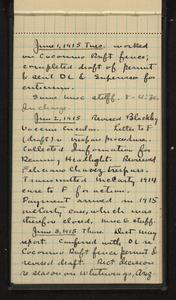 June 1, 1915 Tues. worked
on Coconino Drift fence;
completed draft of permit
& sent DL & Supervisor for
criticism.
Same misc stuff. 8-4:30.
In charge.
June 2, 1915 Revised Blackby
Vaccine Circular. Letter to F
(draft) re trespass procedure.
Collected Information for
Kenney, Headlight. Reviewed
Feliciano Chavez trespass.
Transmitted McCarty 1914
case to F for action.
Payment arrived in 1915
McCarty case, which was
therefore closed. Misc & staff.
June 3, 1915 Thurs Diet May
report. Conferred with DL re
Coconino Drift fence permit &
revised draft. Got decision
re season on Whitewings, Ariz